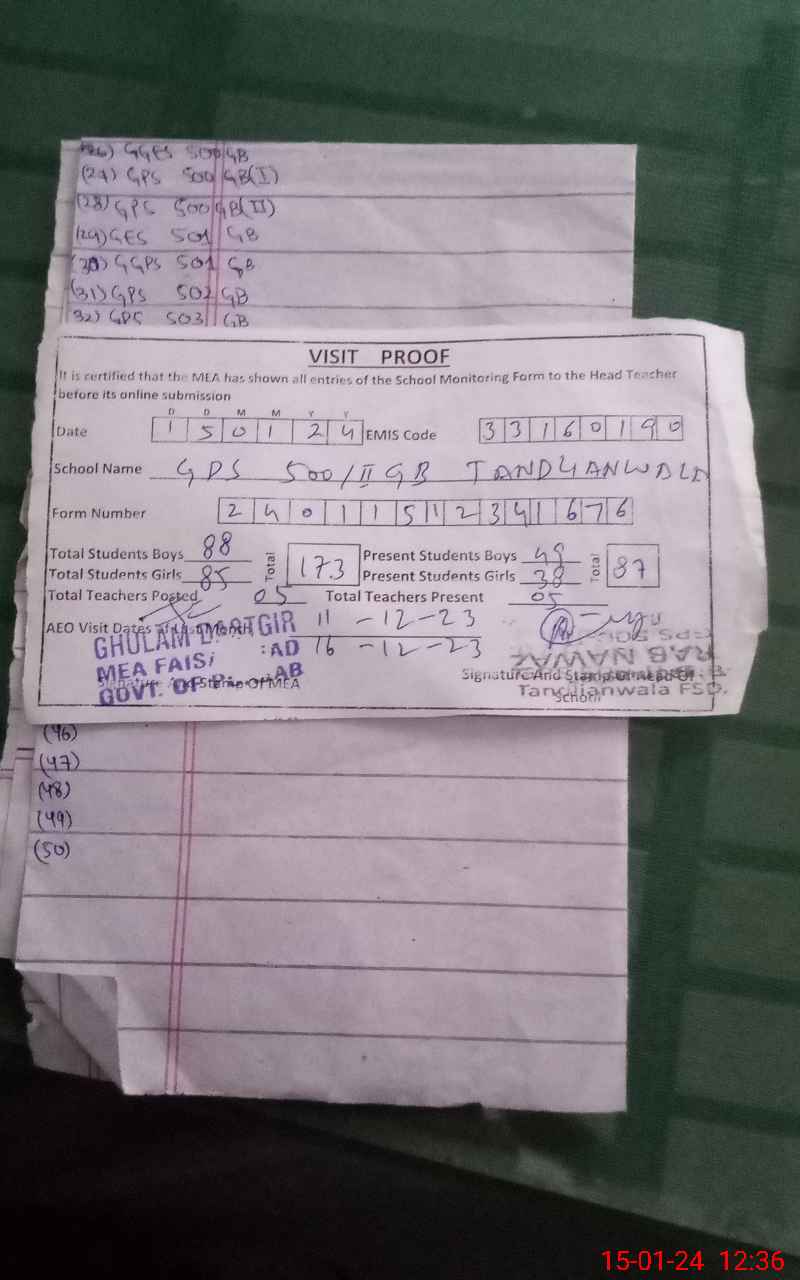 (26) GGES 500 GB
(27) GPS 500 GB(I)
(28) GPS 500 GB(II)
(29) GES 501 GB
(30) GGPS 501 GB
(31) GPS 502 GB
32) GPS 503 GB
VISIT PROOF
It is certified that the MEA has shown all entries of the School Monitoring Form to the Head Teacher
before its online submission
D D M M Y Y
Date 1 5 0 1 2 4 EMIS Code 3 3 1 6 0 1 9 0
School Name GPS 500/II GB TANDLIANWALA
Form Number 2 4 0 1 1 5 1 2 3 4 1 6 7 6
Total Students Boys 88 Total 173 Present Students Boys 49 Total 87
Total Students Girls 85 Present Students Girls 38
Total Teachers Posted 05 Total Teachers Present 05
AEO Visit Dates of Last Month 11-12-23
16-12-23
GHULAM DASTGIR
MEA FAIS :AD
GOVT. OF AB
Signature And Stamp Of MEA
RAB NAWAZ
Signature And Stamp Of Head Of
School
Tandlianwala FSD.
(46)
(47)
(48)
(49)
(50)
15-01-24 12:36